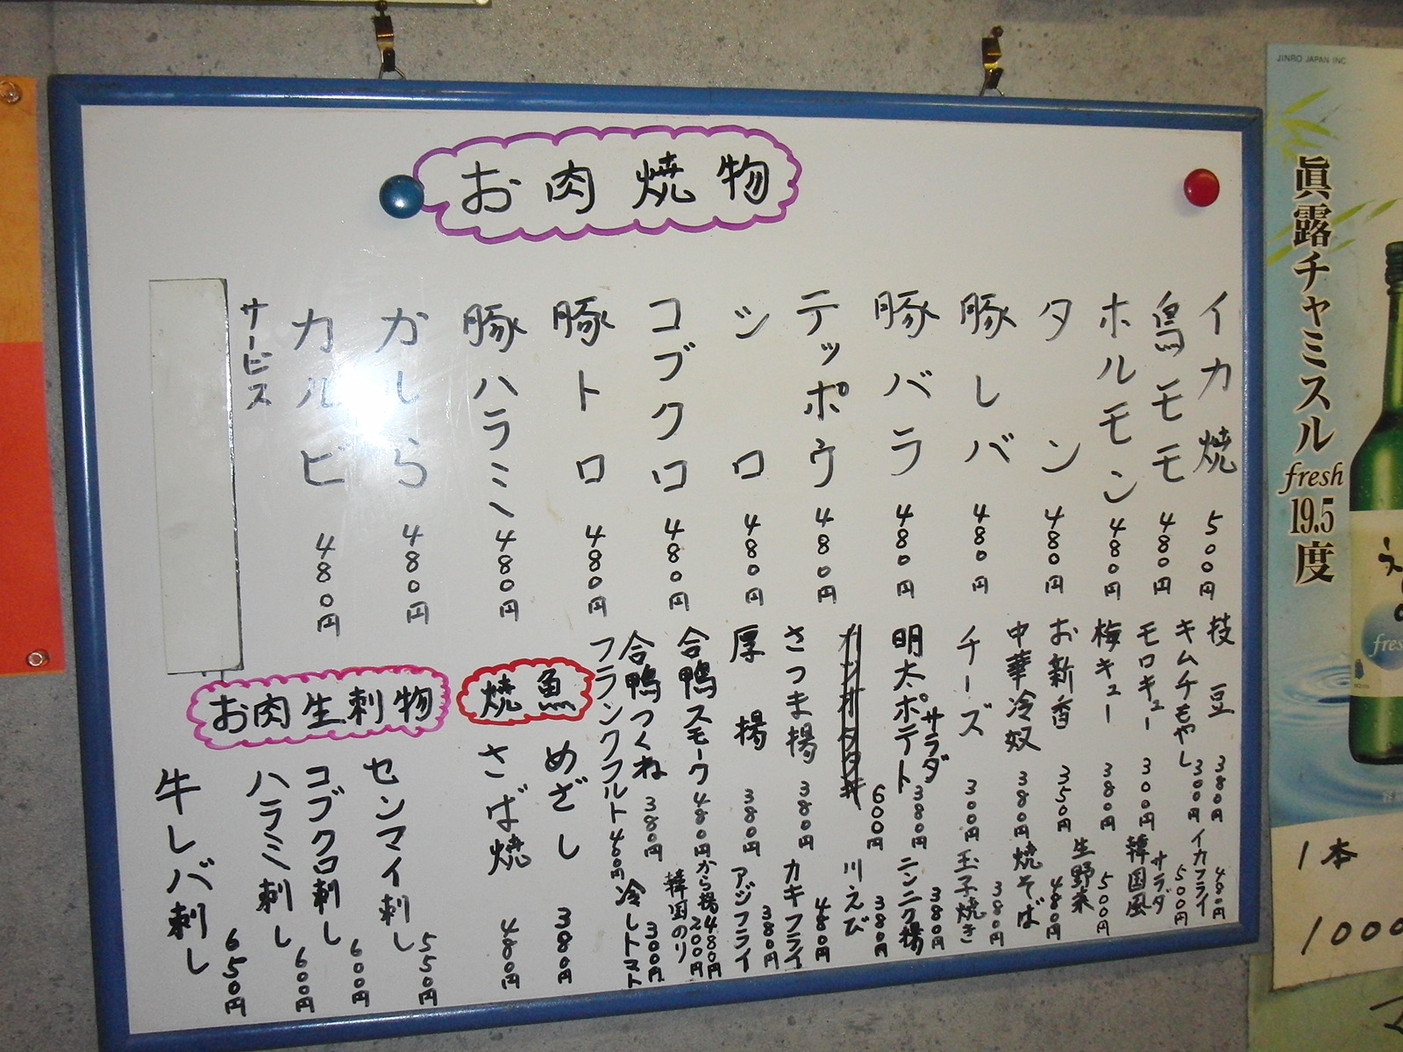 お肉焼物
イカ焼 500円
鳥モモ 480円
ホルモン 480円
タン 480円
豚レバ 480円
豚バラ 480円
テッポウ 480円
シロ 480円
コブクロ 480円
豚トロ 480円
豚ハラミ 480円
かしら 480円
カルビ 480円
サービス
枝豆 380円
キムチもやし 300円
モロキュー 300円
梅キュー 380円
お新香 350円
中華冷奴 380円
チーズ 300円
明太ポテトサラダ 380円
600円
さつま揚 380円
厚揚 380円
合鴨スモーク 480円
合鴨つくね 380円
フランクフルト 400円
イカフライ 480円
韓国風サラダ 500円
生野菜 500円
焼そば 480円
玉子焼き 380円
ニンニク揚 380円
川えび 380円
カキフライ 480円
アジフライ 380円
から揚 480円
韓国のり 200円
冷しトマト 300円
焼魚
めざし 380円
さば焼 480円
お肉生刺物
センマイ刺し 550円
コブクロ刺し 600円
ハラミ刺し 600円
牛レバ刺し 650円
JINRO JAPAN INC.
眞露チャミスル
fresh
19.5度
1本
1000